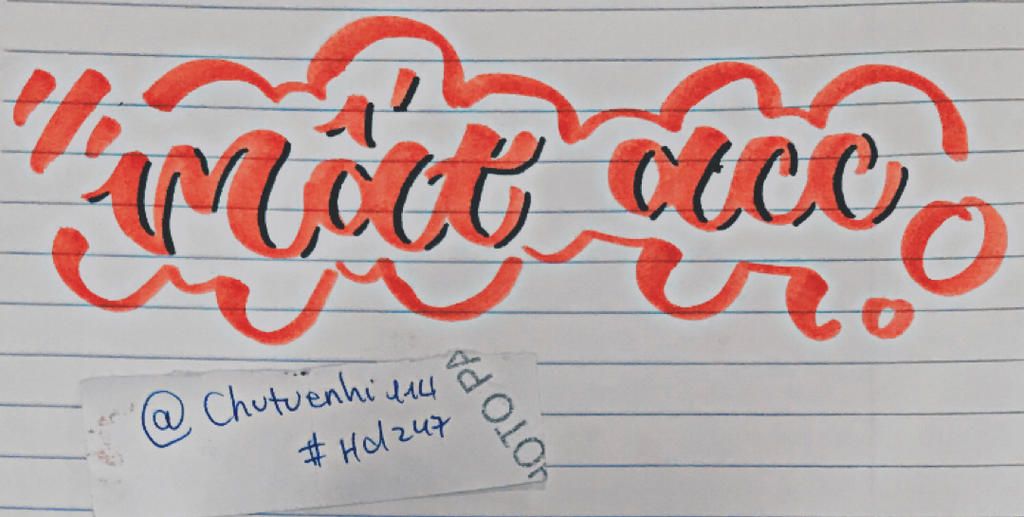 mất acc
@Chutuenhi114
#Hd247
OTO PA